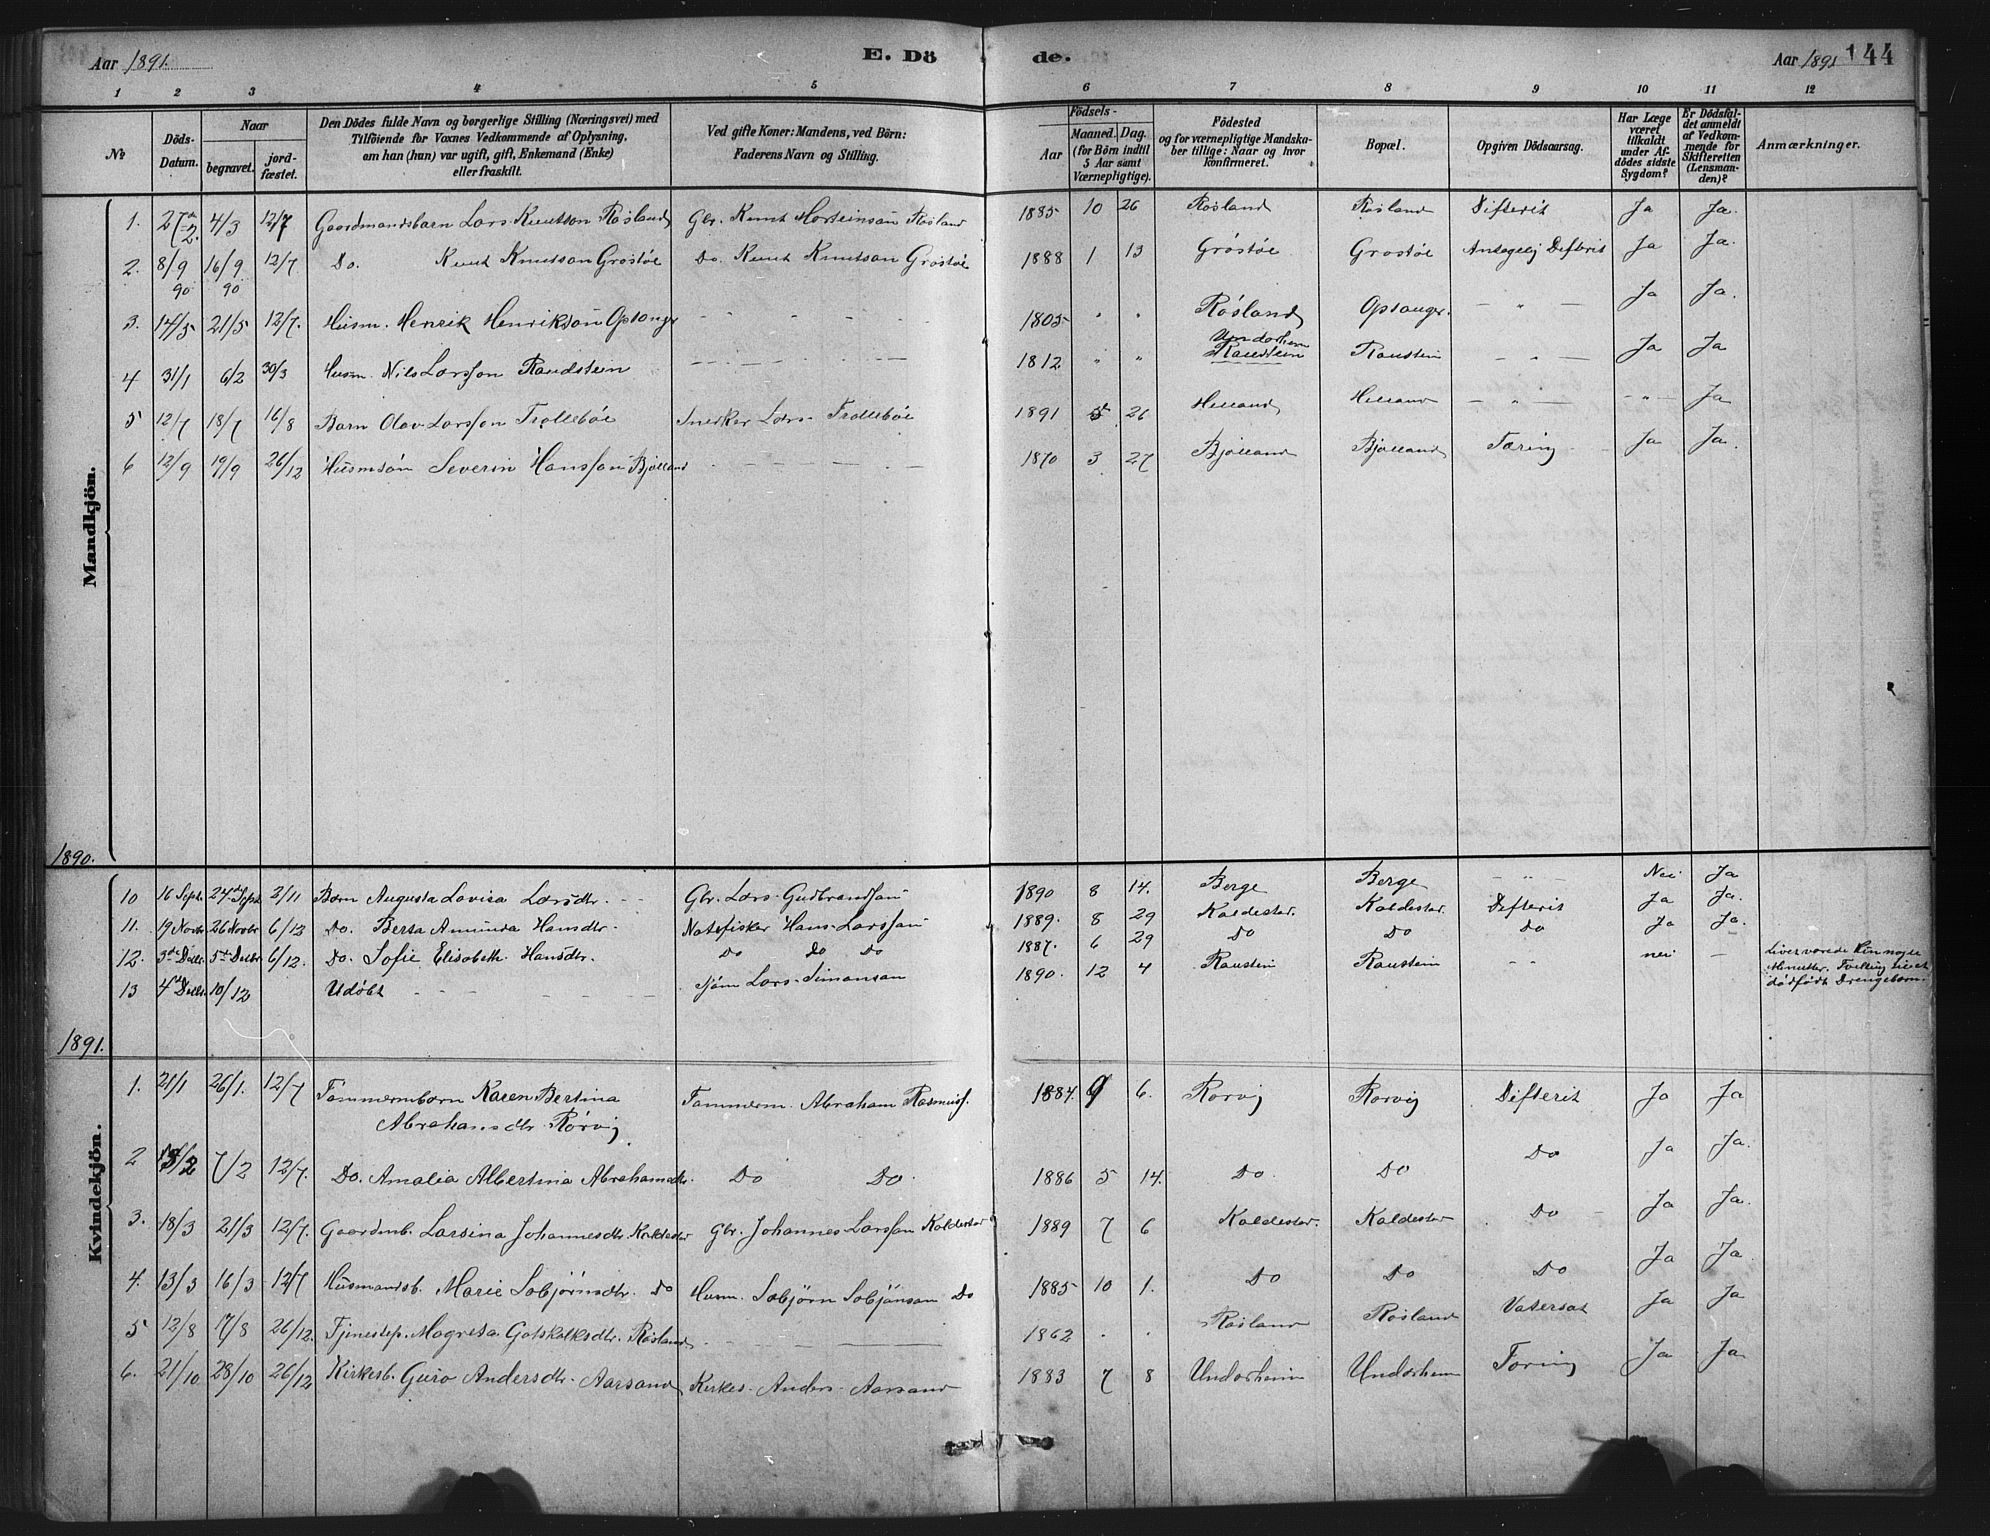 Aar 1891. E. Dö de. Aar 1891 144
1 2 3 4 5 6 7 8 9 10 11 12
№
Döds-Datum.
Naar
begravet.
jord-fæstet.
Den Dödes fulde Navn og borgerlige Stilling (Næringsvei) med
Tilföiende for Voxnes Vedkommende af Oplysning,
om han (hun) var ugift, gift, Enkemand (Enke)
eller fraskilt.
Ved gifte Koner: Mandens, ved Börn:
Faderens Navn og Stilling.
Födsels-
Aar
Maaned. Dag.
(for Börn indtil
5 Aar samt
Værnepligtige).
Födested
og for værnepligtige Mandska-
ber tillige: Naar og hvor
konfirmeret.
Bopæl.
Opgiven Dödsaarsag.
Har Læge
været
tilkaldt
under Af-
dödes sidste
Sygdom?
Er Dödsfal-
det anmeldt
af Vedkom-
mende for
Skifteretten
(Lensman-
den)?
Anmærkninger.
Mandkjön.
1. 27/2. 4/3 12/7 Gaardmandsbarn Lars Knutson Røsland Gbr. Knut Røsland 1885 10 26 Røsland Røsland Difterit Ja Ja.
2. 8/9 90 16/9 90 12/7 Do. Knut Knutson Grostøe Do. Knut Knutson Grostøe 1888 1 13 Grøstøe Grostøe Difterit Ja Ja.
3. 14/5 21/5 12/7. Husm. Henrik Henrikson Opsanger - - - - 1805 " " Røsland Opsanger. - " - Ja Ja.
4 31/1 6/2 30/3 Husm. Nils Larsson Raudstein - - - - 1812 " " Undarheim Raudstein Raustein - " - Ja Ja
5 12/7 18/7 16/8 Barn Olav Larsson Trollebøe Snedker Lars Trollebøe 1891 5 26 Helland Helland - " - - " - Ja
6 12/9 19/9 26/12 Husmsøn Severin Hansson Bjølland - - - - 1870 3 27 Bjølland Bjølland Tæring Ja Ja.
1890.
10 16 Sept. 24de Sept. 2/11 Barn Augusta Lovisa Larsdtr. - - Gbr. Lars Gudbrandson 1890 8 14. Berge Berge - " - Nei Ja
11. 19 Novbr 26 Novbr 6/12 Do. Berta Amunda Hansdtr. Notefisker Hans Larsson 1889. 8 29 Kaldestad. Kaldestad. Difterit Ja Ja.
12. 3de Decbr. 5te Decbr 6/12. Do. Sofie Elisabeth Hansdtr. Do Do Do 1887. 6 29 Do Do Do Ja Ja.
13 4de Decbr. 10/12 Udøbt - - - - Lars Simonson 1890. 12 4 Raustein Raustein - - nei - Liv varede kun nogle
Minutter. Tvilling til et
dødfødt Drengebarn.
1891.
Kvindekjön.
1. 21/1 26/1. 12/7 Tømmermbarn Karen Bertina Tømmerm. Abraham Rasmuss. 1884. 9 6. Rørvig Rørvig Difterit Ja Ja
Abrahamsdtr. Rørvig
2 /2 7/2 12/7. Do. Amalia Albertina Abrahamsdtr. Do Do. 1886 5 14. Do. Do Do Ja Ja.
3. 18/3 21/3 12/7. Gaardmb. Larsina Johannesdtr. Kaldestad Gbr. Johannes Larsson Kaldestad 1889 7 6 Kaldestad. Kaldestad Do - Ja Ja.
4. 13/3 16/3 12/7 Husmandsb. Marie Sobjørnsdtr. Do Husm. Sobjørn Sobjønson Do 1885 10 1. Do Do Do Ja Ja
5 12/8 17/8 26/12. Tjenestep. Magreta Gotskalksdtr. Røsland - - - - 1862 . . Røsland Røsland Vatersot Ja Ja
6. 21/10 28/10 26/12 Kirkesb. Guro Andersdtr. Aarsand Kirkes. Anders Aarsand 1883 7 8 Undarheim Undarheim Tæring Ja Ja.